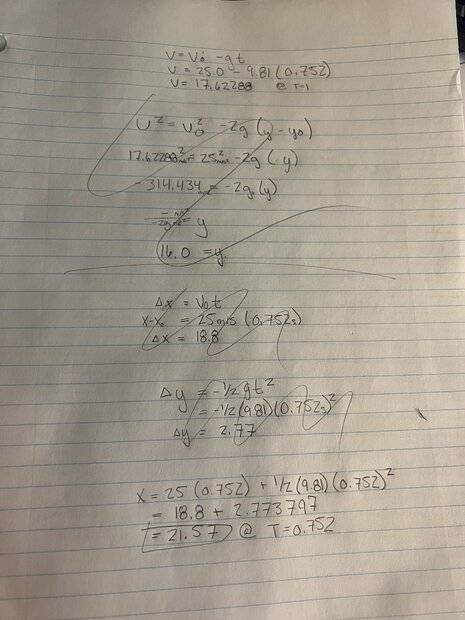 V = V₀ - gt
V = 25.0 - 9.81 (0.752)
V = 17.62288 @ T=1
U² = V₀² - 2g (y - y₀)
17.62288² = 25² - 2g ( y)
- 314.434 = -2g (y)
= y
16.0 = y
Δx = V₀t
x-x₀ = 25m/s (0.752s)
Δx = 18.8
Δy = -1/2 gt²
= -1/2 (9.81) (0.752s)²
Δy = 2.77
X = 25 (0.752) + 1/2 (9.81) (0.752)²
= 18.8 + 2.773797
= 21.57 @ T=0.752